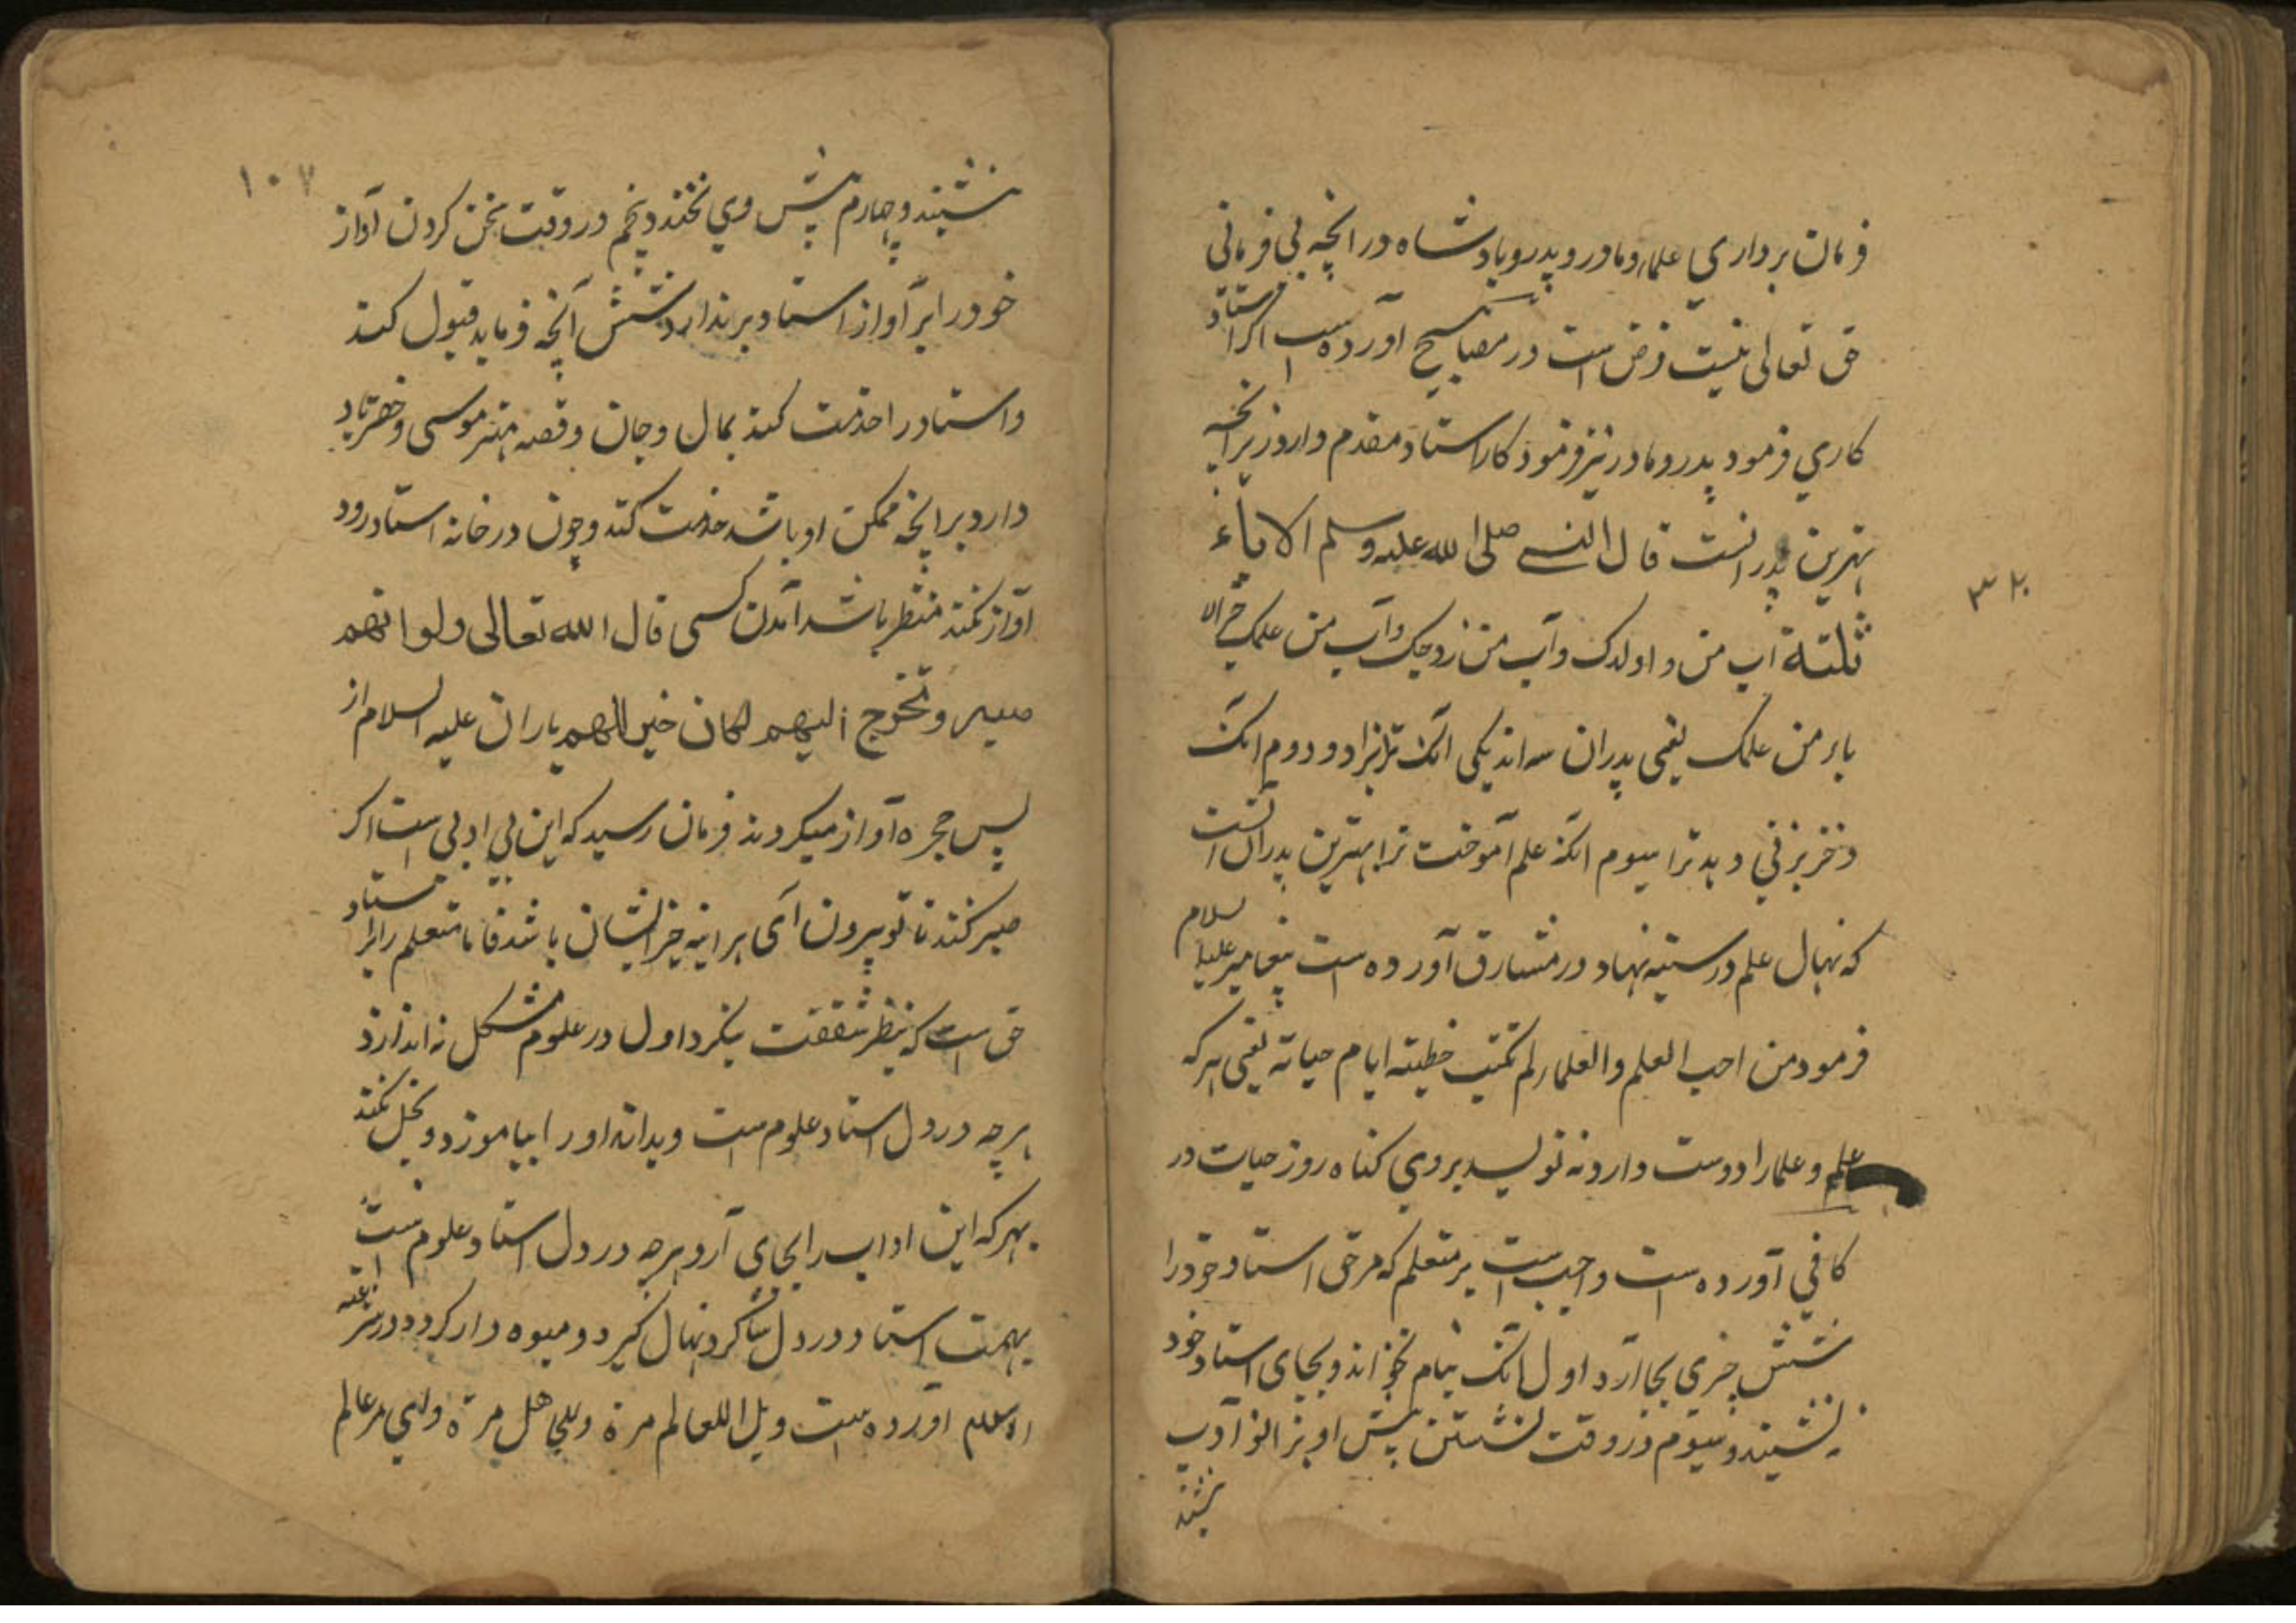 فرمان برداري علما و مادر و پدر و پادشاه در انچه بي فرماني
حق تعالی نیست فرض است در مصابیح آورده است اکر استاد
کاري فرمود پدر و مادر نیز فرمود کار استاد مقدم دارد زیرانچه
بهترین پدر انست قال النبي صلی الله علیه وسلم الاباء
ثلثة اب من و اولدک و آب من زوجک و آب من علمک خیر الا
باء من علمک یعنی پدران سه اند یکی انک ترا بزاد و دوم انک
دختر بزني دهد ترا سیوم انکه علم آموخت ترا بهترین پدر آنست
که نهال علم در سینه نهاد در مشارق آورده است پیغامبر علیه السلام
فرمود من احب العلم والعلماء لم تکتب خطیئته ایام حیاته یعنی هر که
علم و علما را دوست دارد نه نویسد بروي کناه روز حیات در
کافي آورده است واجب است بر متعلم که مر حق استاد خود را
شش چیزي بجا آرد اول انک بنام نخواند و بجای استاد خود
نه نشیند و سیوم در وقت نشستن پیش او بزانو آدب
بنشیند
۳۲
۱۰۷
بنشیند و چهارم پیش وي نخندد و پنجم در وقت سخن کردن آواز
خود را بر آواز استاد بر ندارد ششم آنچه فرماید قبول کند
و استاد را خدمت کند بمال و جان و قصه مهتر موسی و خضر یاد
دارد برانچه ممکن او باشد خدمت کند و چون در خانه استاد رود
آواز نکند منتظر باشد آمدن کسی قال الله تعالی ولو انهم
صبر و تخرج الیهم لکان خیر اللهم یاران علیه السلام از
پس حجره آواز میکردند فرمان رسید که این بي ادبي است اکر
صبر کنند تا تو بیرون آی هر اینه خیر ایشان باشد فاما متعلم را بر استاد
حق است که بنظر شفقت بنکرد اول در علوم مشکل نه اندازد
هر چه در دل استاد علوم است و بداند او را بیاموزد و بخل نکند
بهر که این اداب را بجای آرد هر چه در دل استاد علوم است
بهمت استاد در دل شاکرد نهال کیرد و میوه دار کردد در شرعة
الاسلام آورده است ویل اللعالم مرة وللجاهل مرة وای مر عالم